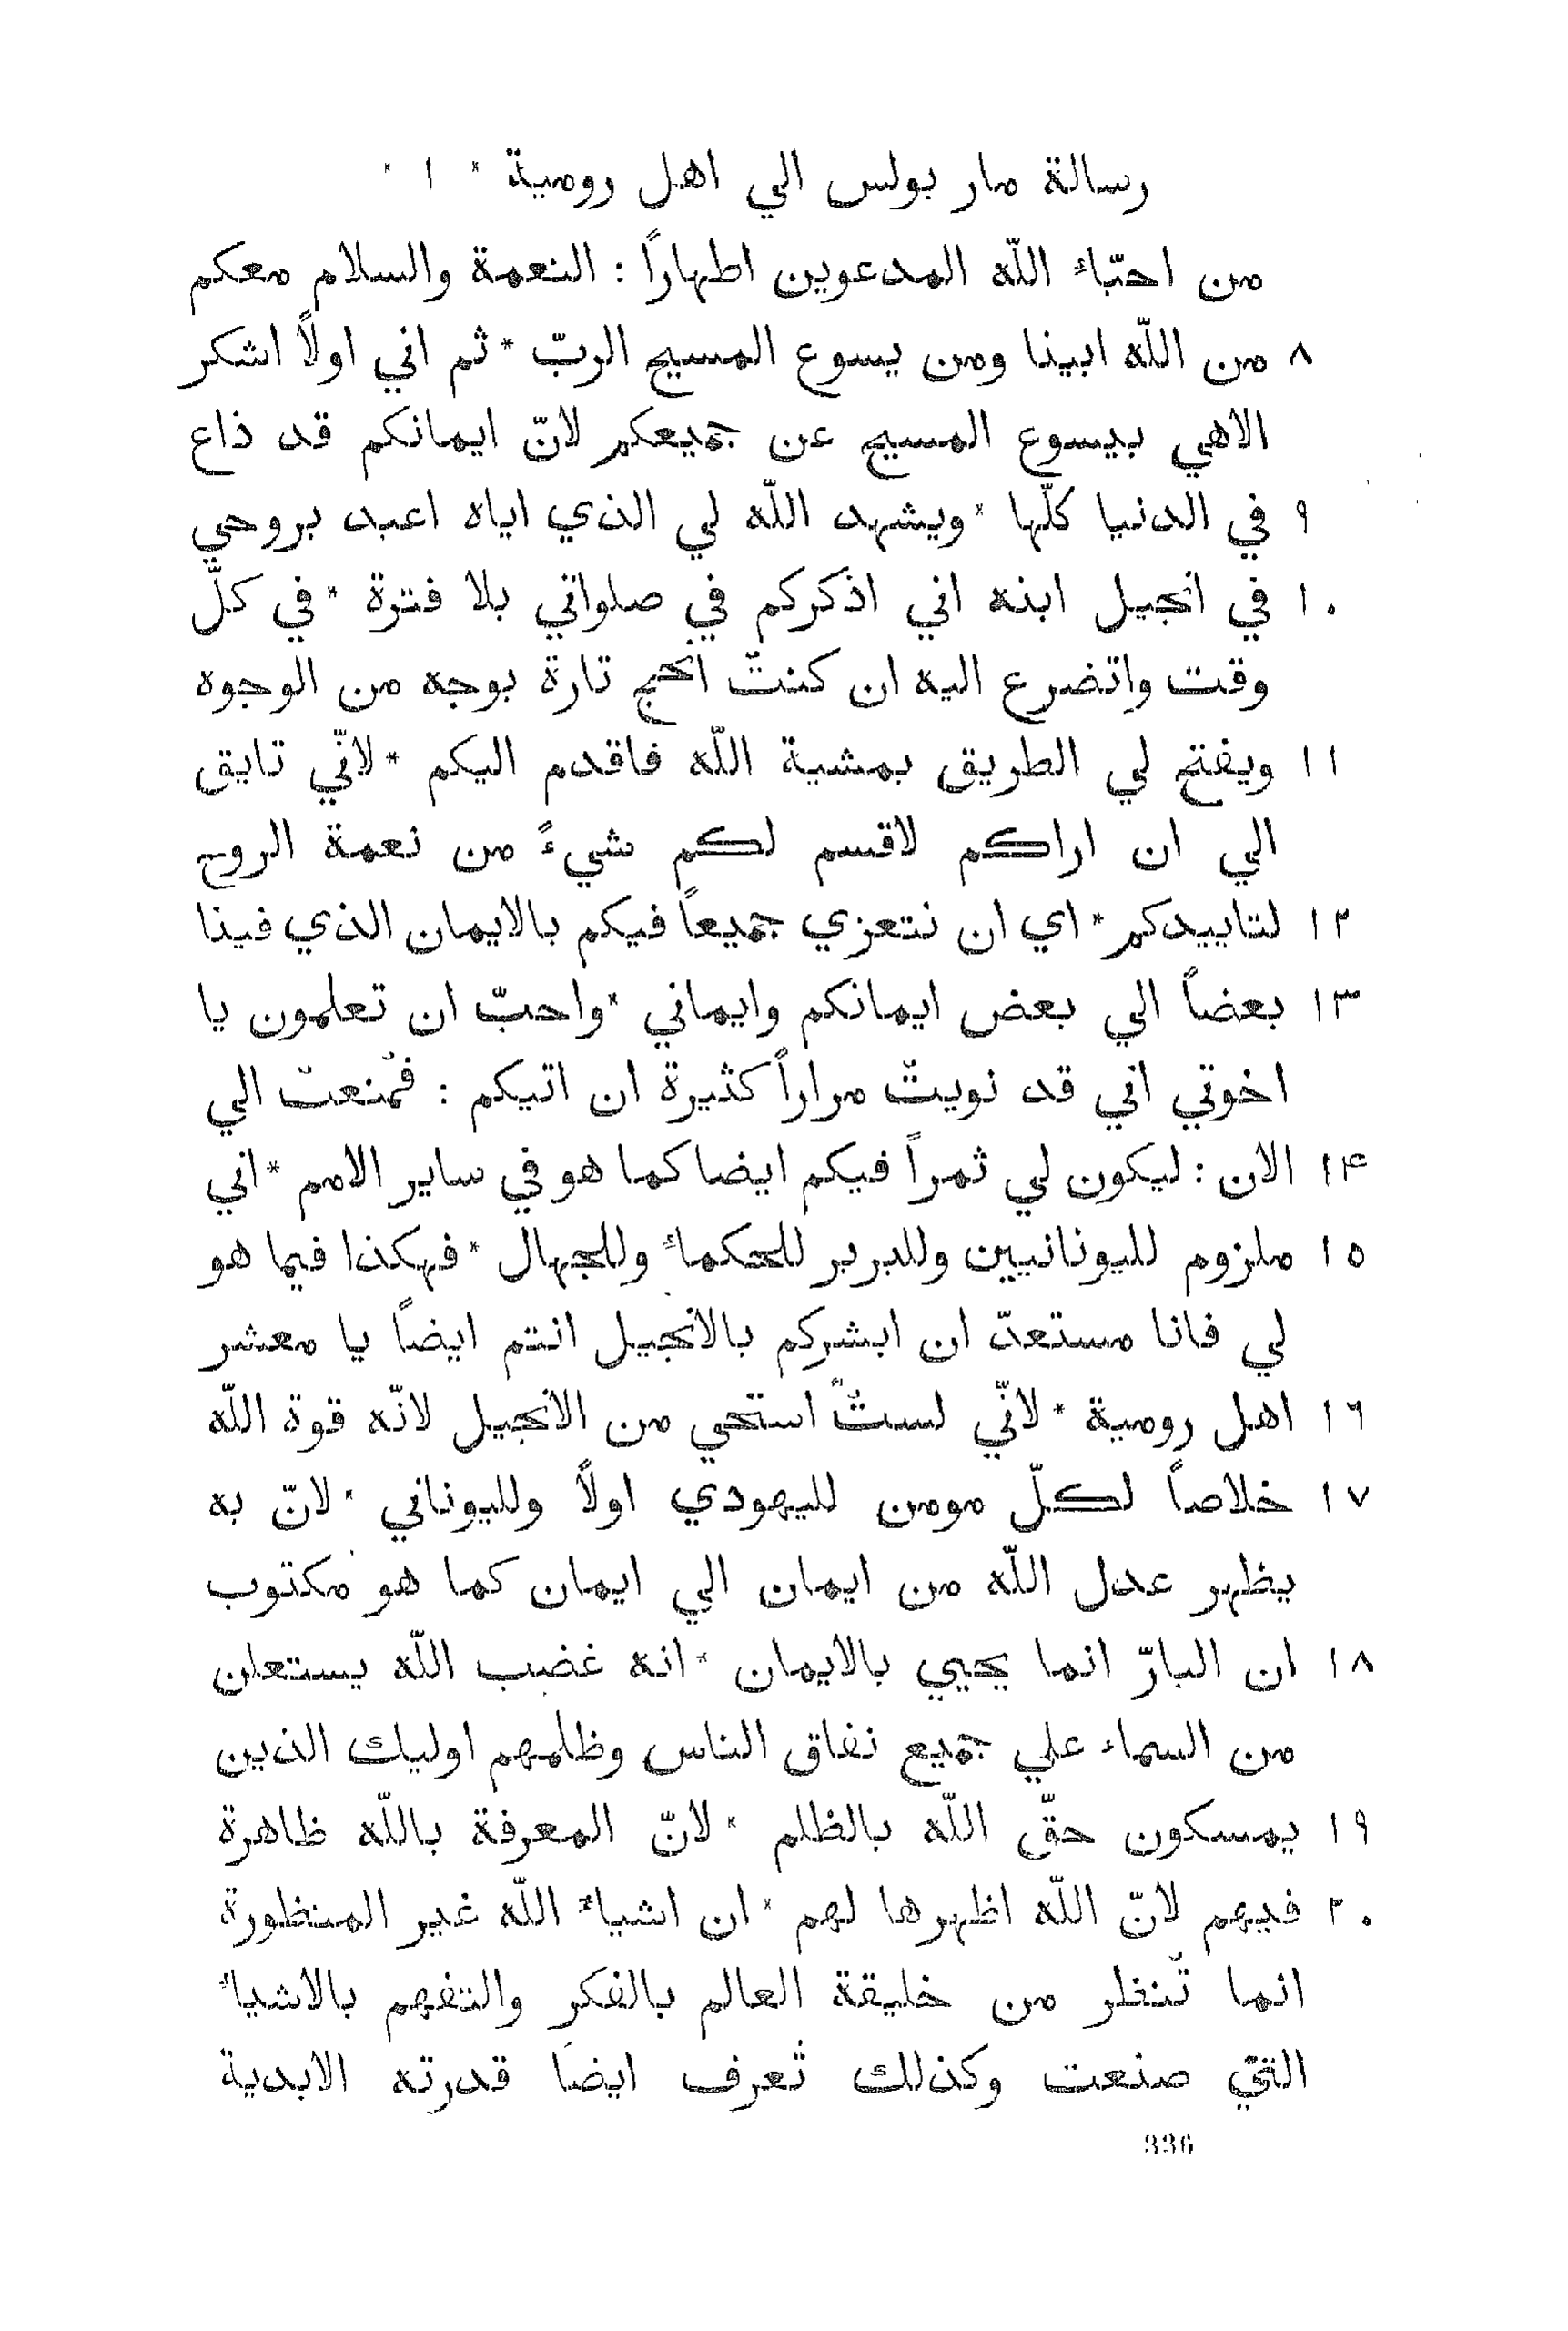 رسالة مار بولس الي اهل رومية * ١ *
من احبّاء اللّه المدعوين اطهاراً : النعمة والسلام معكم
٨ من اللّه ابينا ومن يسوع المسيح الربّ * ثم اني اولاً اشكر
الاهي بيسوع المسيح عن جميعكم لانّ ايمانكم قد ذاع
٩ في الدنيا كلّها * ويشهد اللّه لي الذي اياه اعبد بروحي
١٠ في انجيل ابنه اني اذكركم في صلواتي بلا فترة * في كلّ
وقت واتضرع اليه ان كنتُ انجح تارة بوجه من الوجوه
١١ ويفتح لي الطريق بمشية اللّه فاقدم اليكم * لانّي تايق
الي ان اراكم لاقسم لكم شيءً من نعمة الروح
١٢ لتاييدكم * اي ان نتعزي جميعاً فيكم بالايمان الذي فينا
١٣ بعضاً الي بعض ايمانكم وايماني * واحبّ ان تعلمون يا
اخوتي اني قد نويتُ مراراً كثيرة ان اتيكم : فمُنعتُ الي
١۴ الان : ليكون لي ثمراً فيكم ايضا كما هو في ساير الامم * اني
١٥ ملزوم لليونانيين وللبربر للحكماء وللجهال * فهكذا فيما هو
لي فانا مستعدّ ان ابشركم بالانجيل انتم ايضاً يا معشر
١٦ اهل رومية * لانّي لستُ استحي من الانجيل لانّه قوة اللّه
١٧ خلاصاً لكلّ مومن لليهودي اولاً ولليوناني * لانّ به
يظهر عدل اللّه من ايمان الي ايمان كما هو مكتوب
١٨ ان البارّ انما يحيي بالايمان * انه غضب اللّه يستعلن
من السماء علي جميع نفاق الناس وظلمهم اوليك الذين
١٩ يمسكون حقّ اللّه بالظلم * لانّ المعرفة باللّه ظاهرة
٢٠ فيهم لانّ اللّه اظهرها لهم * ان اشياء اللّه غير المنظورة
انما تُنظر من خليقة العالم بالفكر والتفهم بالاشياء
التي صنعت وكذلك تُعرف ايضاً قدرته الابدية
336